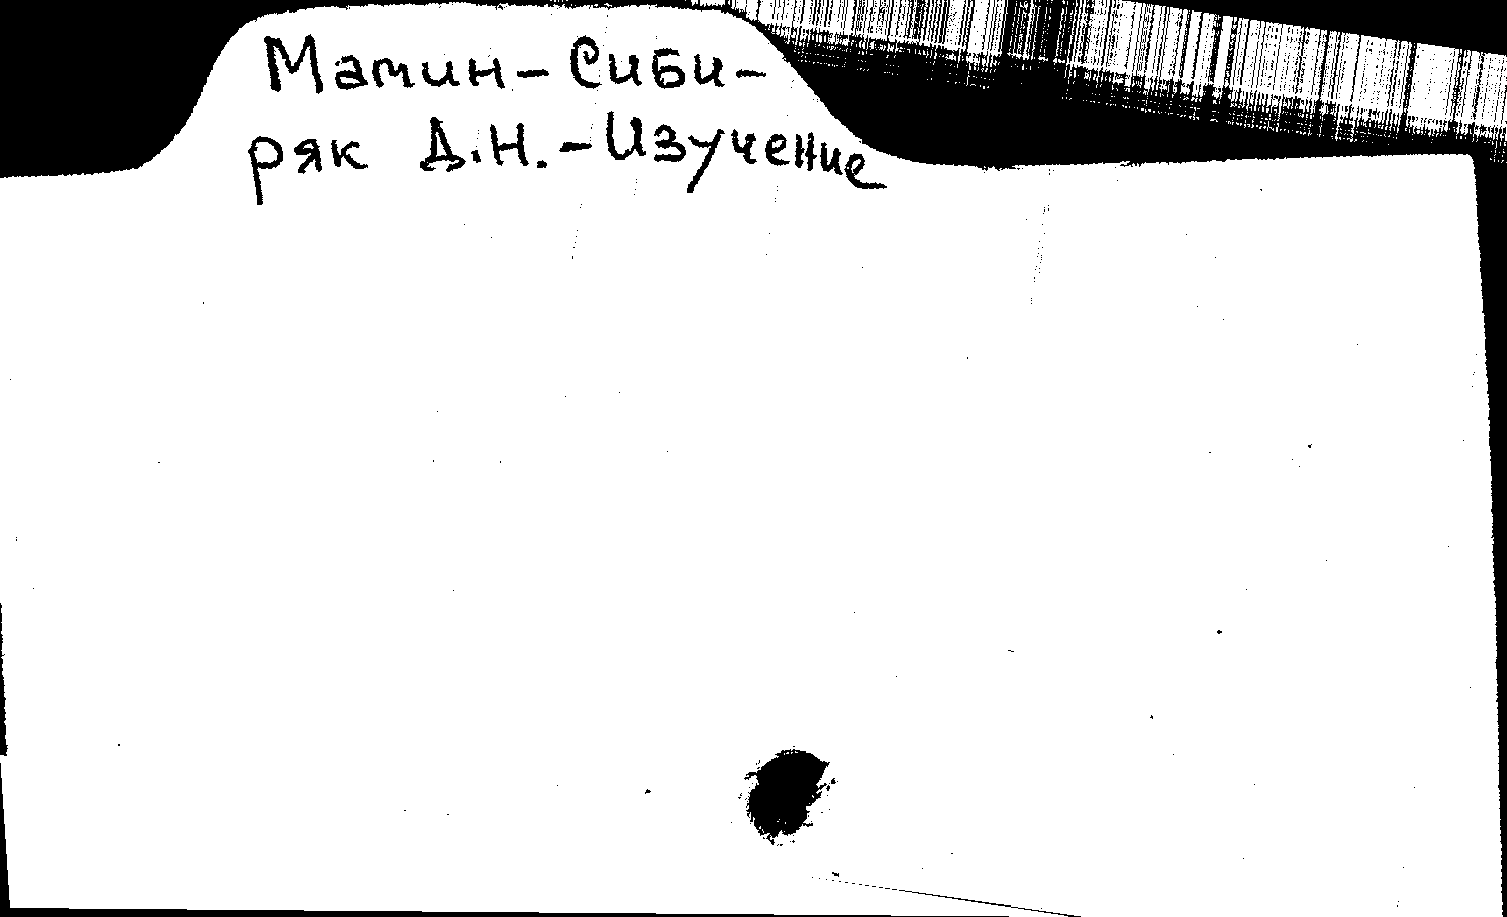 Мамин-Сиби-
ряк Д.Н.-Изучение